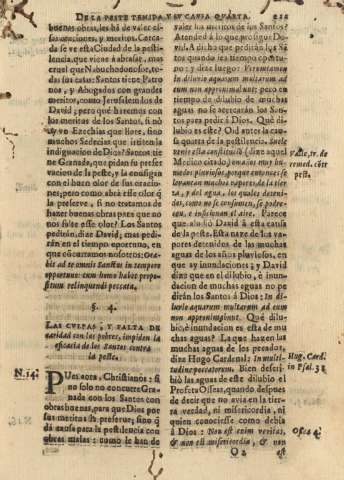 DE LA PESTE TEMIDA, Y SV CAVSA QVARTA. 211
buenas obras, les hà de valer es-
sas oraciones, y meritos. Cerca-
da se ve esta Ciudad de la pesti-
lencia, que viene à abrasar, mas
cruel que Nabuchodonosor, to-
das sus casas: Santos tiene Patro-
nos, y Abogados con grandes
meritos, como Jerusalem los de
David; pero què haremos con
los meritos de los Santos, si no
ay vn Ezechias que llore, sino
muchos Sedecias que irriten la
indignacion de Dios? Santos tie-
ne Granada, que pidan se preser-
ve de la peste, y la consigan
con el buen olor de sus oracio-
nes; pero como abrà esse olor que
la preserve, si no tratamos de
hazer buenas obras para que no
nos falte esse olor? Los Santos
pediràn, dize David, mas pedi-
ràn en el tiempo oportuno, en
que cooperamos nosotros: Ora-
bit ad te omnis Sanctus in tempore
opportuno: cum homo habet propo-
situm relinquendi peccata.
§. 4.
LAS CVLPAS, Y FALTA DE
caridad con los pobres, impiden la
eficacia de los Santos contra
la peste.
N. 14.
PUes aora, Christianos: si
no solo no concurre Grana-
da con los Santos con
obras buenas, para que Dios por
sus meritos la preserve; sino q̃
dà causa para la pestilencia con
obras malas: como le han de
valer los meritos de los Santos?
Atended à lo que prosigue Da-
vid. A dicho que pediràn los Sã-
tos quando ven que es tiempo
oportuno; y dize luego: Veruntamen
in diluvio aquarum multarum ad
eum non approximabunt; pero en
tiempo de diluvio de muchas
aguas no se acercaràn los San-
tos para pedir à Dios. Què di-
luvio es este? Oid antes la cau-
sa quarta de la pestilencia: Suele
venir esta constitucion (dize aquel
Medico citado) en años muy hu-
medos pluviosos, porque entonces se
levantan muchos vapores de la tier-
ra, y del agua, los quales deteni-
dos, como no se consumen, se pudre-
cen, è inficionan el aire. Parece
que aludiò David à esta causa
de la peste. Esta nace de los va-
pores detenidos de las muchas
aguas de los años pluviosos, en
que ay inundaciones; y David
dize que en el diluvio, è inunda-
cion de muchas aguas no pedi-
ràn los Santos à Dios: In di-
luvio aquarum multarum ad eum
non approximabunt. Què dilu-
vio, è inundacion es esta de mu-
chas aguas? La que hazen las
muchas aguas de los pecados,
dize Hugo Cardenal: In multi-
tudine peccatorum. Bien descri-
biò las aguas de este diluvio el
Profeta Osseas, quando despues
de decir que no avia en la tier-
ra verdad, ni misericordia, ni
quien conociesse como debia
à Dios: Non est enim veritas,
& non est misericordia, & non
O 2 est
Valle, tr. de
remed. cõtr.
pest.
Hug. Card.
in Psal. 31
Ose. 4.